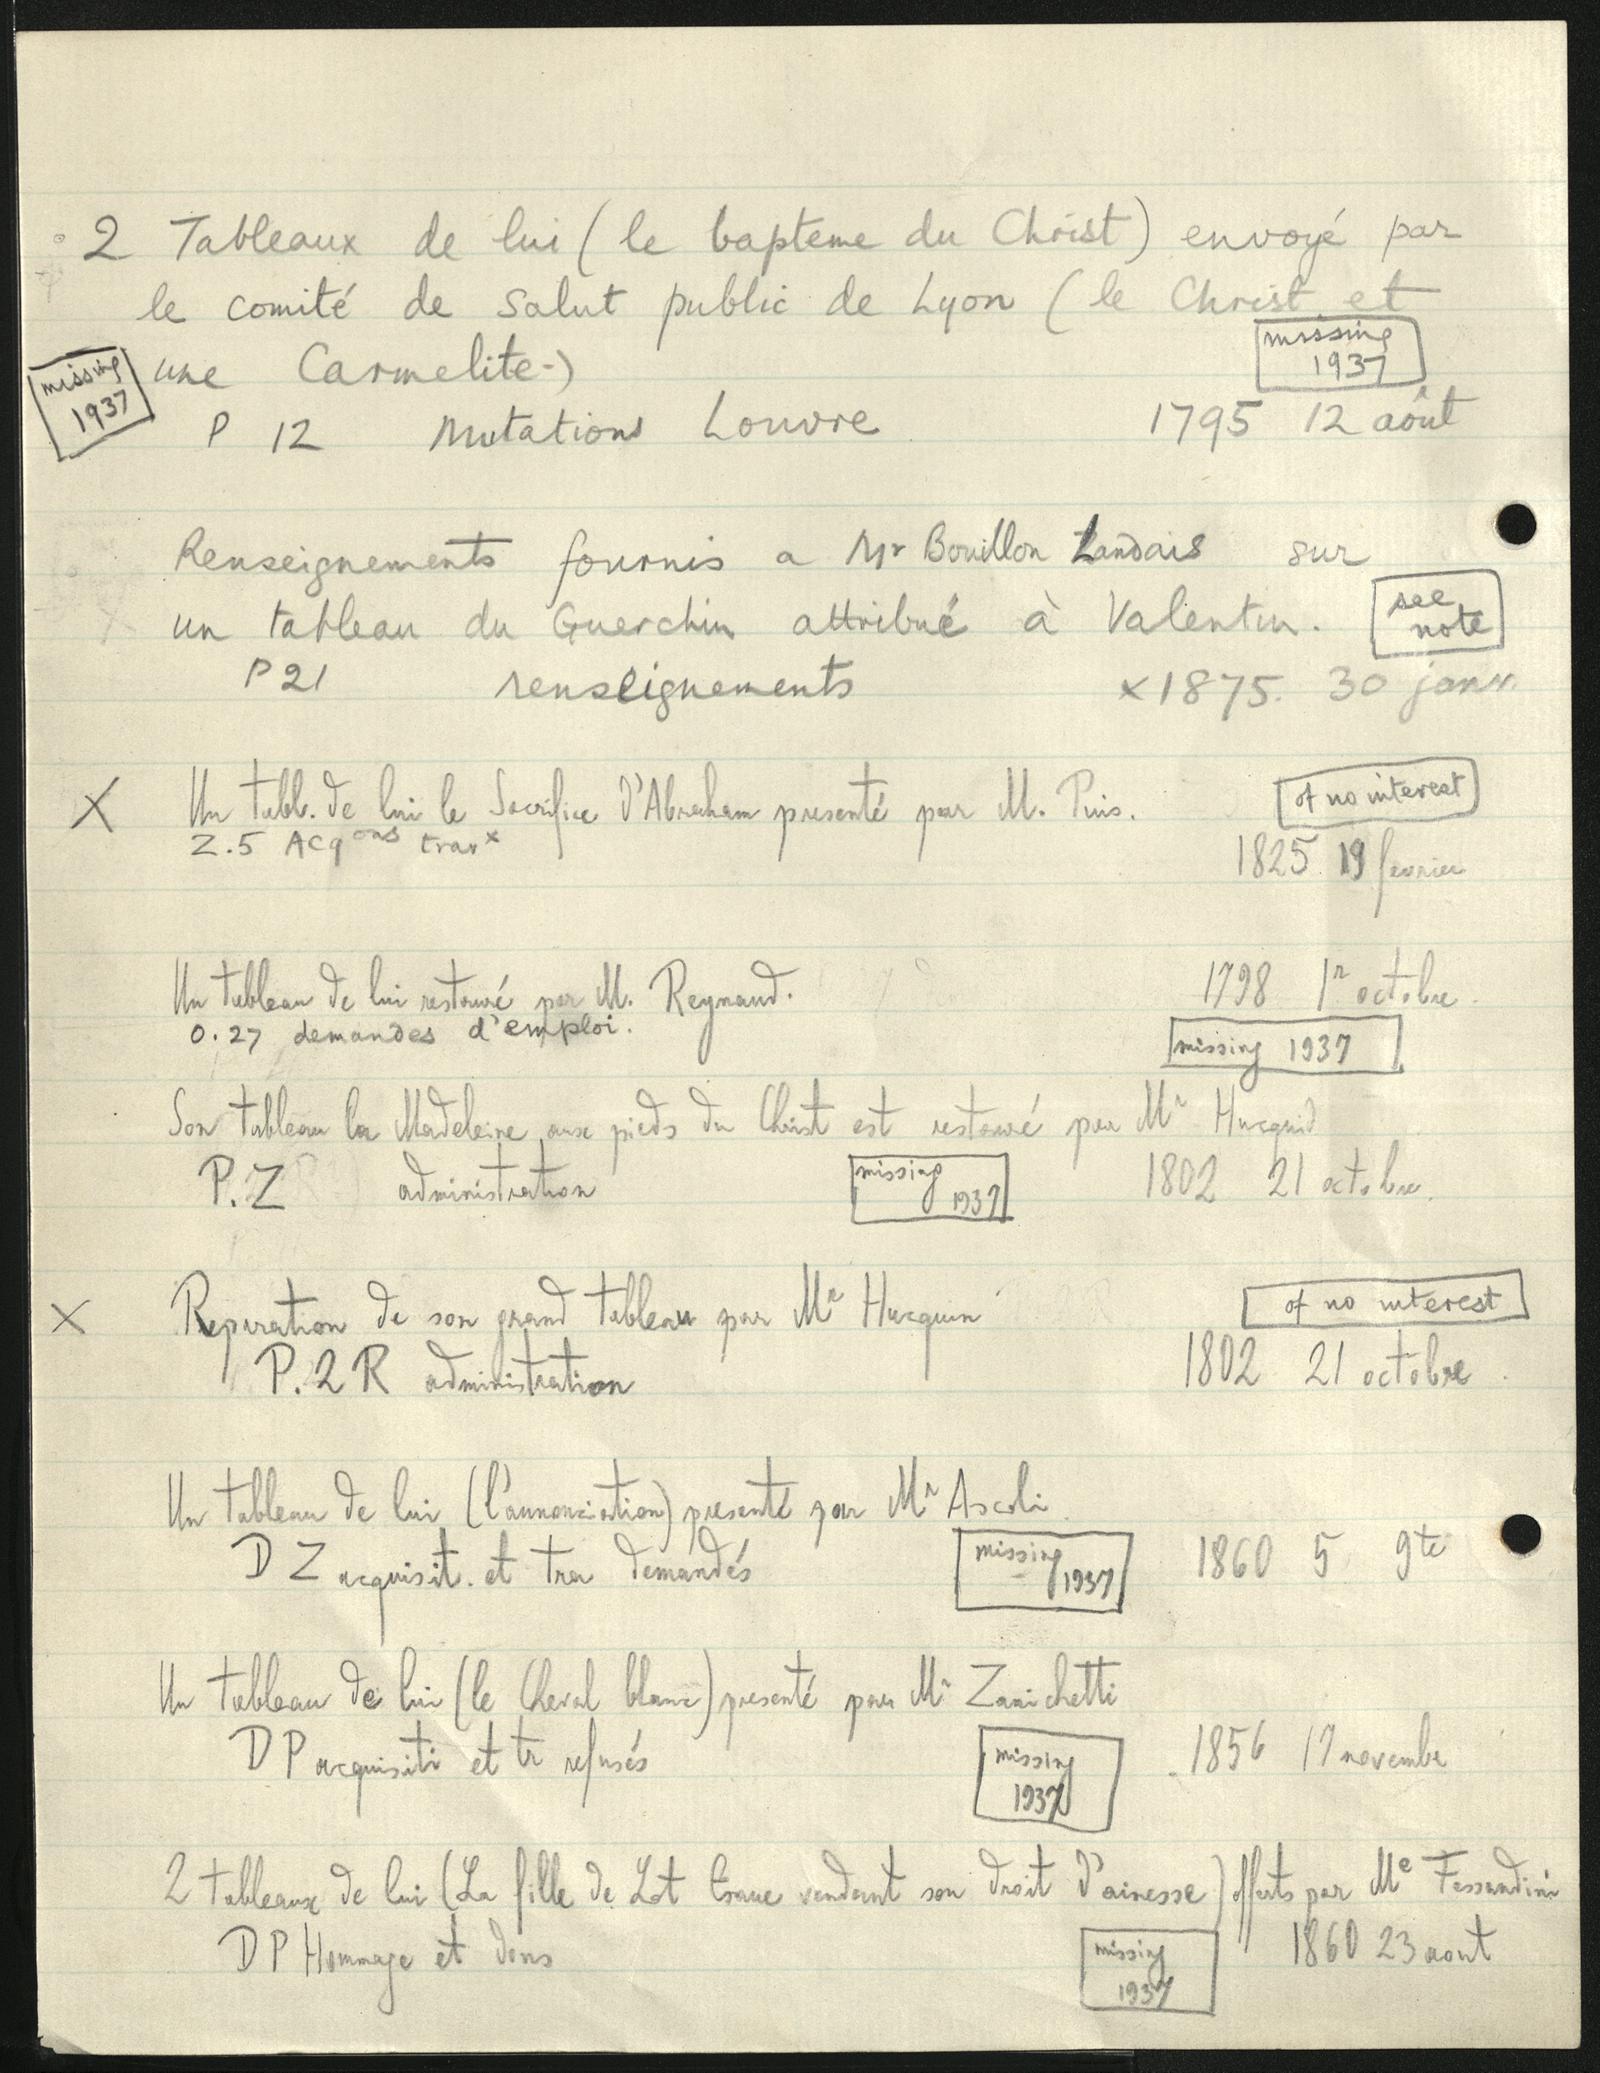 2 Tableaux de lui (le bapteme du Christ) envoyé par
le comité de salut public de Lyon (le Christ et
missing
1937
une Carmelite-)
missing
1937
P 12 Mutations Louvre 1795 12 août
Renseignements fournis a Mr Bouillon Landais sur
un tableau du Guerchin attribué à Valentin.
see
note
P 21 renseignements x 1875. 30 janv.
X Un tabl. de lui le Sacrifice d'Abraham presenté par M. Puis.
of no interest
Z.5 Acqons travx
1825 19 fevrier
Un tableau de lui restauré par M. Reynaud. 1798 1r octobre.
0.27 demandes d'emploi.
missing 1937
Son tableau la Madeleine aux pieds du Christ est restauré par Mr
P.Z administration
missing
1937
1802 21 octobre.
X Reparation de son grand tableau par Mr Hacquin
of no interest
P.2R administration 1802 21 octobre.
Un tableau de lui (l'annonciation) presenté par Mr Ascoli.
D Z acquisit. et tra demandés
missing
1937
1860 5 9te
Un tableau de lui (le Cheval blanc) presenté par Mr Zanichetti
D P acquisiti et tr refusés
missing
1937
1856 17 novembe
2 tableaux de lui (La fille de Lot Esaue vendant son droit d'ainesse) offerts par Me
D P Hommage et dons
missing
1937
1860 23 aout